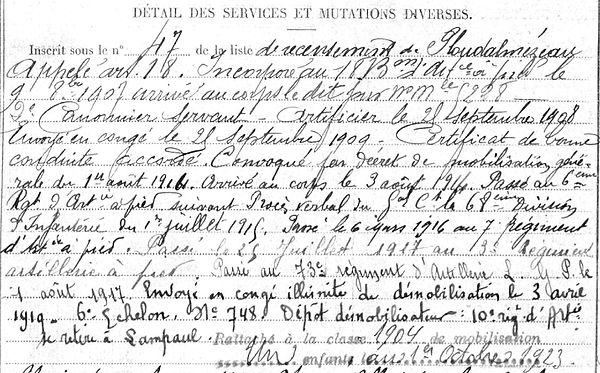 DÉTAIL DES SERVICES ET MUTATIONS DIVERSES.
Inscrit sous le n° 47 de la liste de recensement de Ploudalmézeau
Appelé art. 18. Incorporé au 18 B à pied le
9 8bre 1907 arrivé au corps le dit jour
2e Canonnier Servant - Artificier le 25 septembre 1908
Envoyé en congé le 25 Septembre 1909 - Certificat de bonne
conduite accordé. Convoqué par décret de mobilisation géné-
rale du 1er août 1914. Arrivé au corps le 3 août 1914. Passé au 6eme
Rgt d'Artie à pied suivant Procès verbal du Gal Ct la 68eme Division
d'Infanterie du 1er juillet 1915. Passé le 6 mars 1916 au 7e Régiment
d'Artie à pied. Passé le 25 Juillet 1917 au 3e Régiment
artillerie à pied. Passé au 73e régiment d'Artillerie L. G. P. le
1 août 1917 Envoyé en congé illimité de démobilisation le 3 avril
1919 - 6e Echelon. No 748. Dépôt démobilisateur: 10e régt d'Artie
se retire à Lampaul. Rattaché à la classe 1904 de mobilisation
1er Octobre 1923.